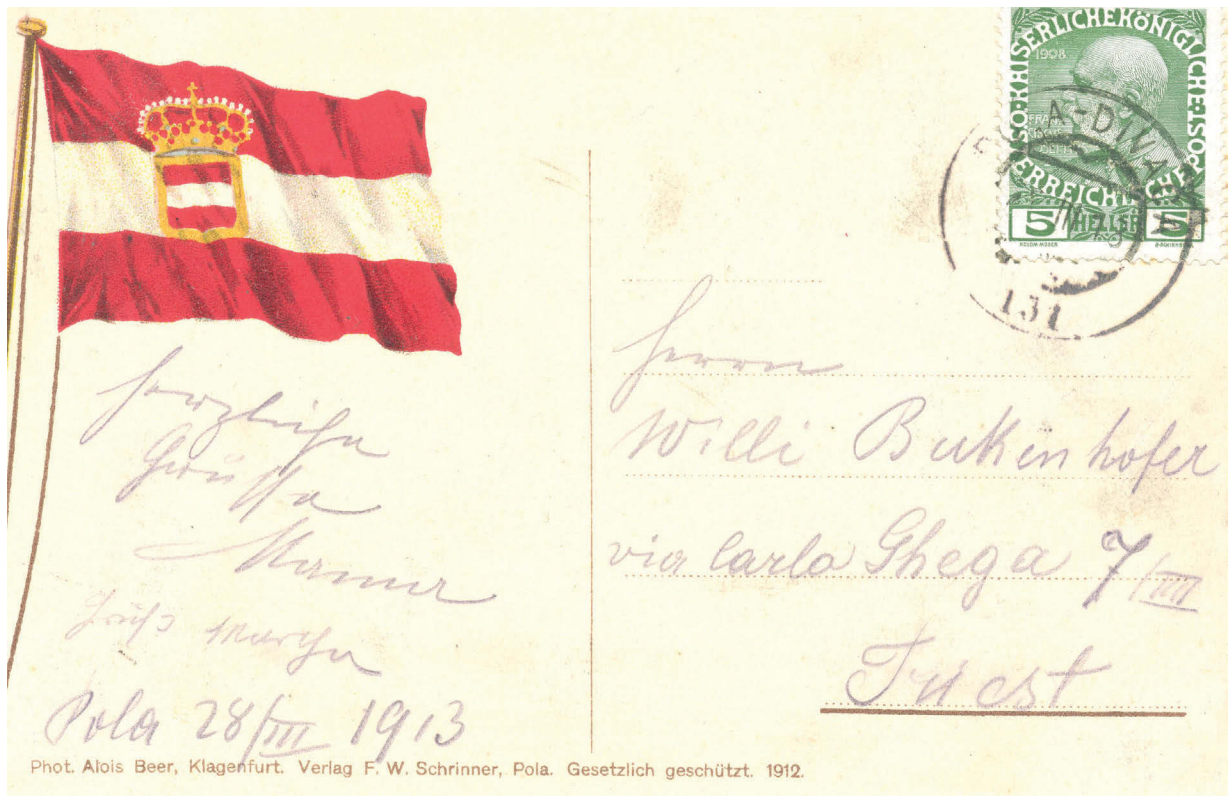 KAISERLICHE KÖNIGLICHE ÖSTERREICHISCHE POST
1908
5 HELLER 5
KOLOM MOSER
131
Herzliche
Grüsse
Pola 28/III 1913
Herrn
Willi Bukenhofer
via Carlo Ghega 7/III
Triest
Phot. Alois Beer, Klagenfurt. Verlag F. W. Schrinner, Pola. Gesetzlich geschützt. 1912.